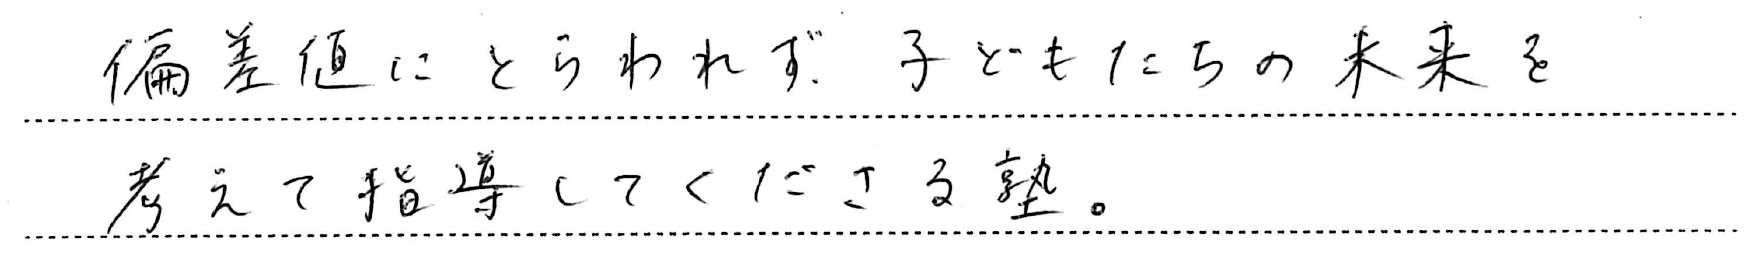 偏差値にとらわれず、子どもたちの未来を
考えて指導してくださる塾。